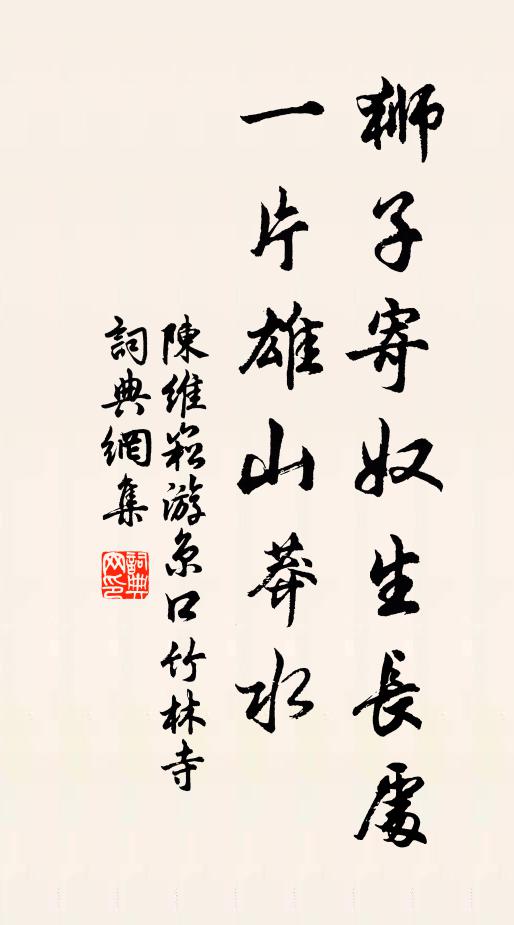 獅子寄奴生長處
一片雄山莽水
陳維崧游京口竹林寺
詞典網集
詞典網印